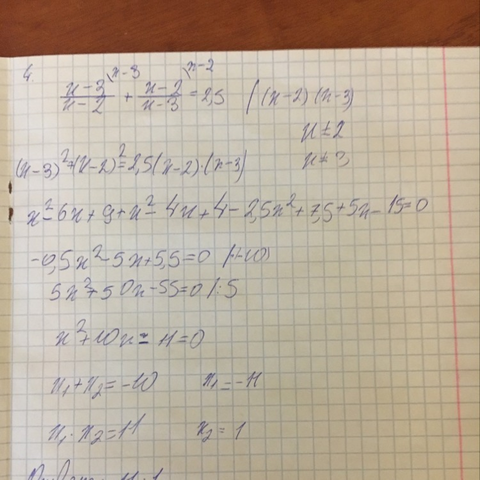 4.
(x-3)/(x-2) \x-3 + (x-2)/(x-3) \x-2 = 2,5 / (x-2)(x-3)
x≠2
x≠3
(x-3)²+(x-2)²=2,5(x-2)(x-3)
x²-6x+9+x²-4x+4-2,5x²+7,5+5x-15=0
-0,5x²-5x+5,5=0 /(-10)
5x²+50x-55=0 /:5
x²+10x-11=0
x₁+x₂=-10 x₁=-11
x₁·x₂=11 x₂=1